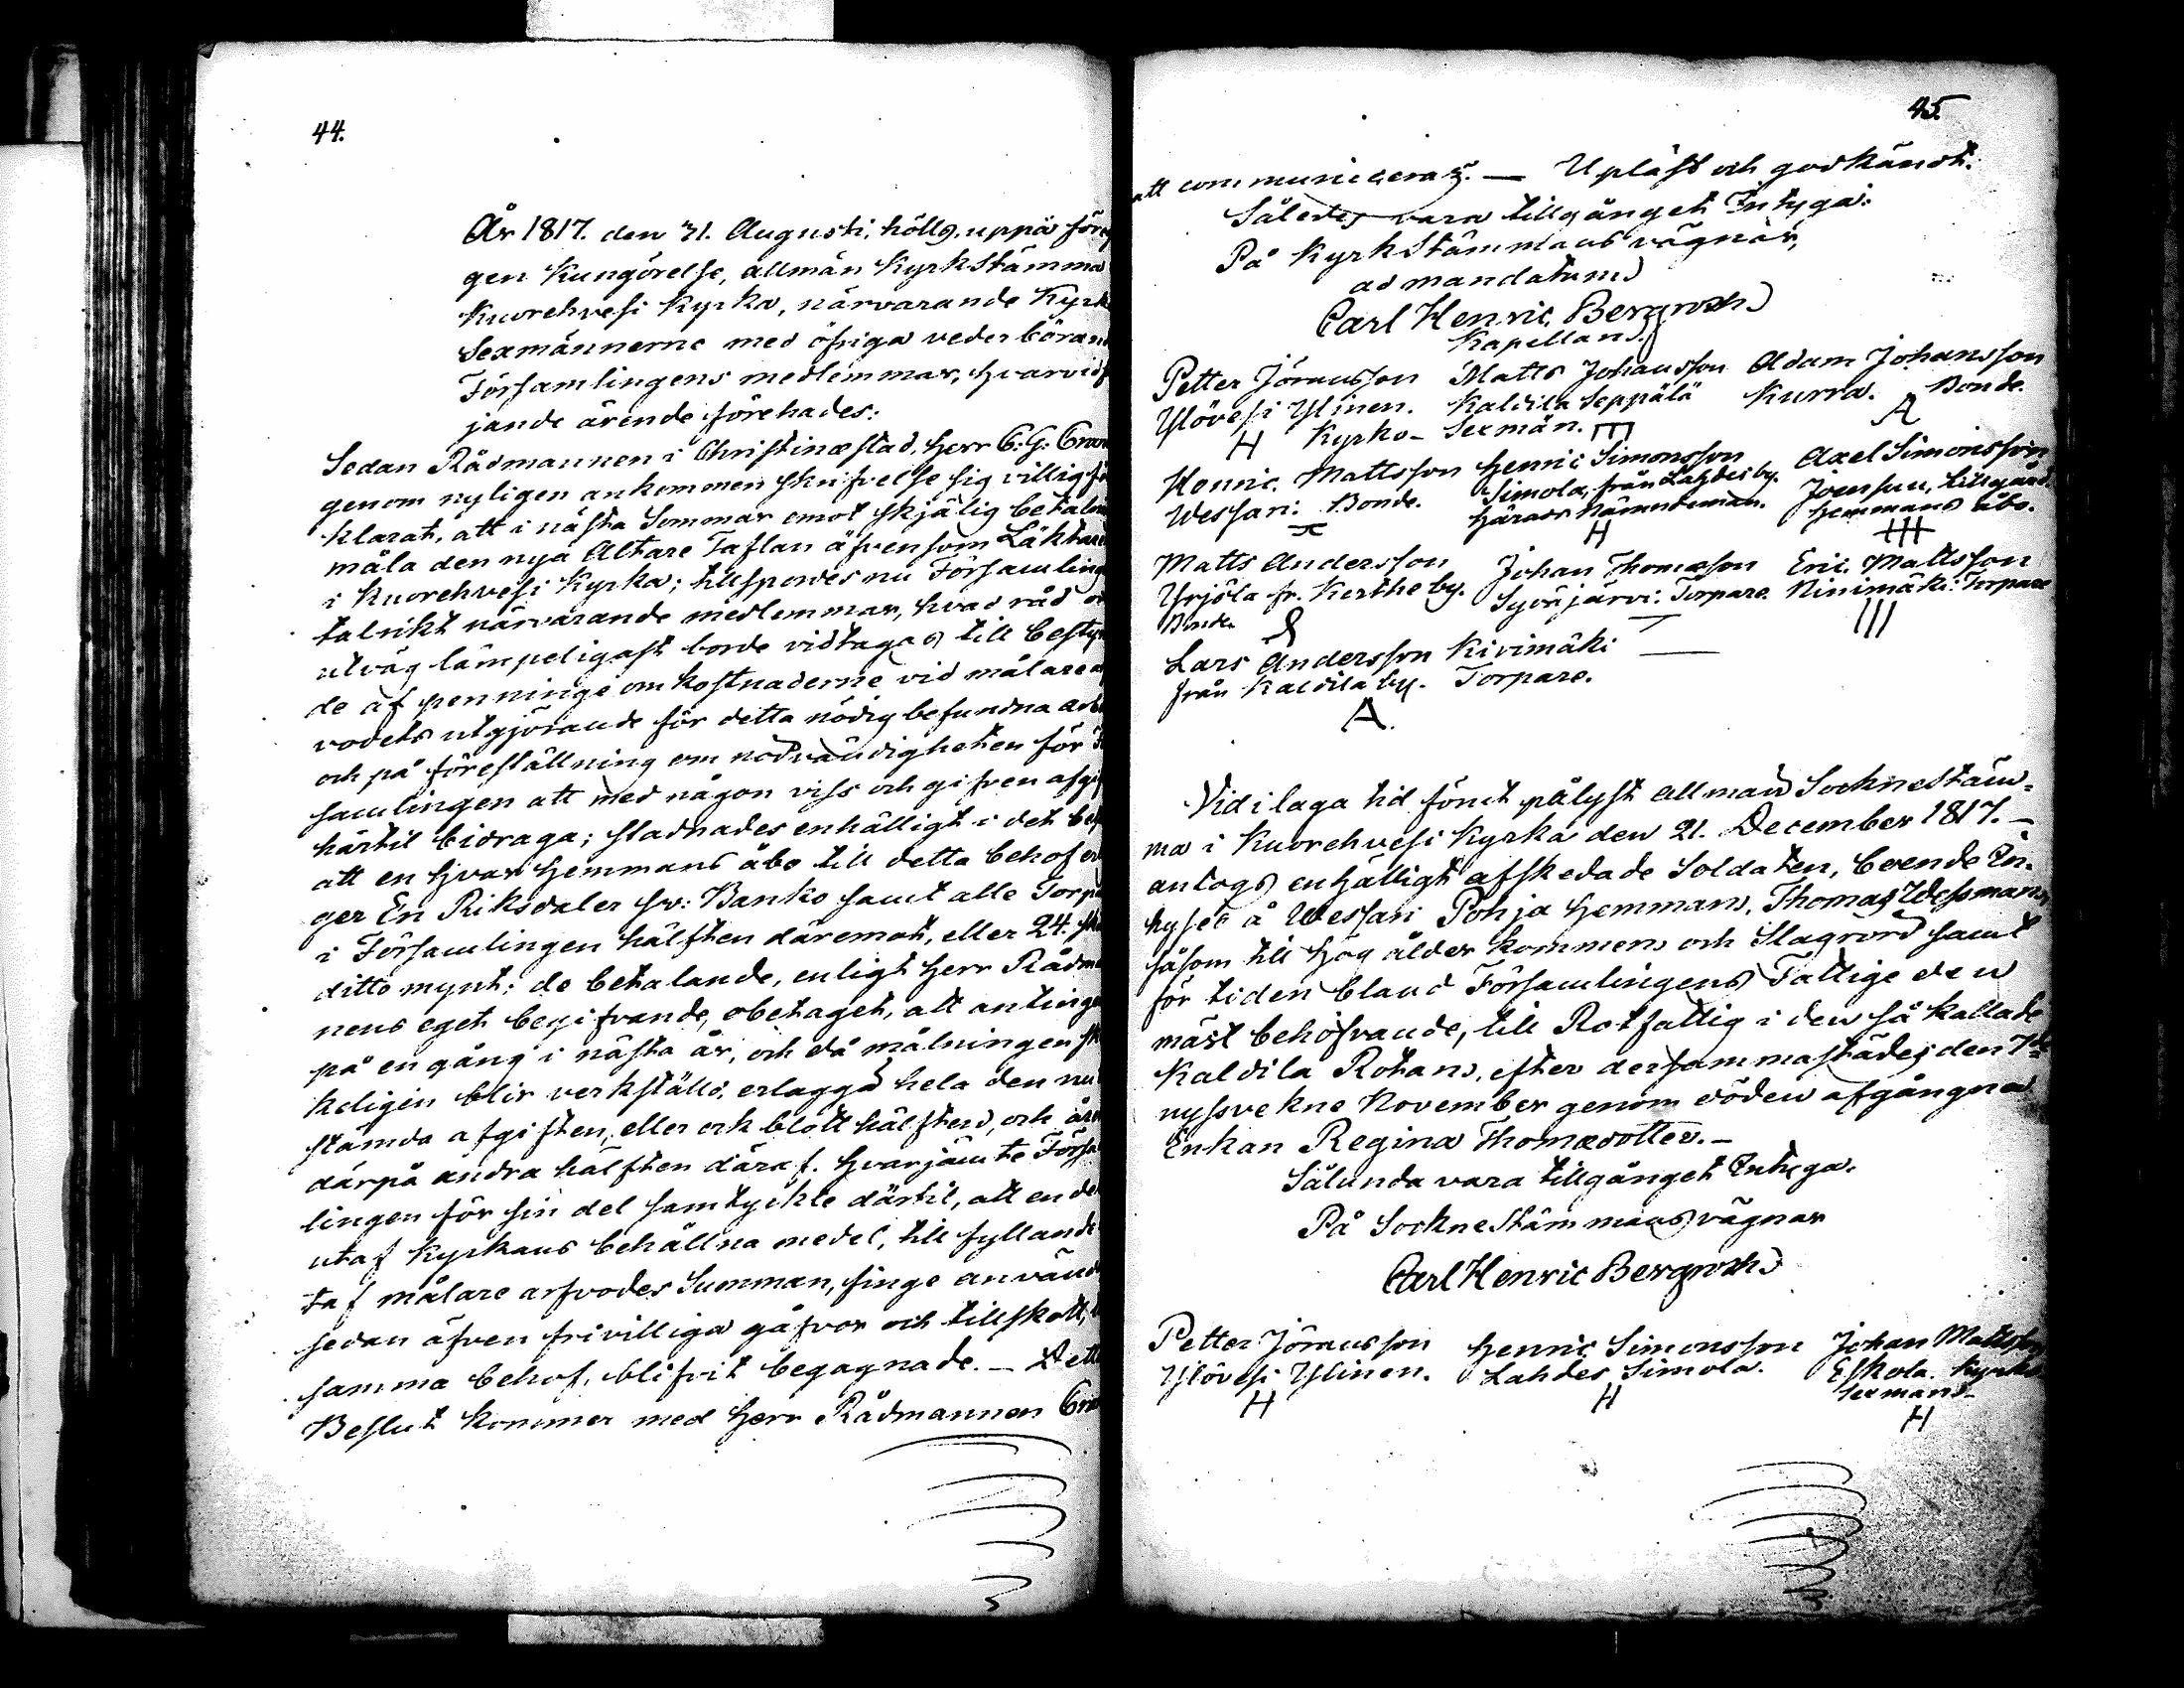 44.
År 1817. den 31. Augusti, hölls, uppå före
gen Kungörelse, allmän KyrkStämma
Kuorehvesi Kyrka, närvarande Kyrk
Sexmännerne med öfriga vederböran
Församlingens medlemmar, hvarvid
jande ärende förehades:
Sedan Rådmannen i Christinæstad, Herr C: G:
genom nyligen ankommen skrifvelse sig villig
klarat, att i nästa Sommar emot skjälig betaln
måla den nya Altare Taflan äfvensom Läktare
i Kuorehvesi Kyrka; tillspordes nu Församling
talrikt närvarande medlemmar, hvad råd
utväg lämpeligast borde vidtagas till besty
de af penninge omkostnaderne vid målare
vodets utgjörande för detta nödig befundna arb
och på föreställning om nödvändigheten för
samlingen att med någon viss och gifven afgif
härtil bidraga; stadnades enhälligt i det
att en hvar Hemmans åbo till detta behof
ger En Riksdaler sv: Banko samt alle Torp
i Församlingen hälften däremot, eller 24.
ditto mynt; de betalande, enligt Herr Rådm
nens eget begifvande, obetaget, att antinge
på en gång i nästa år, och då målningen
keligen blir verkställd, erlägga hela den nu
stämda afgiften, eller ock blott hälften, och år
därpå andra hälften däraf. Hvarjämte Försa
lingen för sin del samtyckte därtil, att en de
utaf Kyrkans behållna medel, till fyllande
taf målare arfvodes Summan, finge använd
sedan äfven frivilliga gåfvor och tillskott,
samma behof, blifvit begagnade. — Dett
Beslut kommer med Herr Rådmannen
45.
att communiceras. — Upläst och godkändt.
Således vara tillgånget Intyga:
På KyrkStämmans vägnar,
ad mandatum
Carl Henric Bergroth
Kapellan.
Petter Jöransson Matts Johansson Adam Johansson
Ylövesi Ylinen. Kaldila Seppälä Kurra. Bonde.
H Kyrko-Sexmän. A
Henric Mattsson Henric Simonsson Axel Simonsson
Wessari: Bonde. Simola, från Lahdes by. Joensuu,
Härads Nämndeman. Hemmans åbo.
H
Matts Andersson Johan Thomasson Eric Mattsson
Yrjölä fr. Kerthe by. Syväjärvi: Torpare. Ninimäki: Torpare
Bonde III
Lars Andersson Kivimäki
från Kaldila by. Torpare.
A.
Vid i laga tid förut pålyst allmän SockneStäm-
ma i Kuorehvesi Kyrka den 21. December 1817. —
antogs enhälligt afskedade Soldaten, boende In-
hyses å Wessari Pohja Hemman, Thomas Wessman,
såsom till hög ålder kommen och Slagrörd samt
för tiden bland Församlingens Fattige den
mäst behöfvande, till Rotfattig i den så kallade
Kaldila Rotan, efter dersammastädes den 7de
nyssvekne November genom döden afgångna
Enkan Regina Thomædotter. —
Sålunda vara tillgånget Intyga.
På SockneStämmans vägnar
Carl Henric Bergroth
Petter Jöransson Henric Simonsson Johan Mattsson
Ylövesi Ylinen. Lahdes Simola. Eskola. Kyrko
H H Sexman.
H